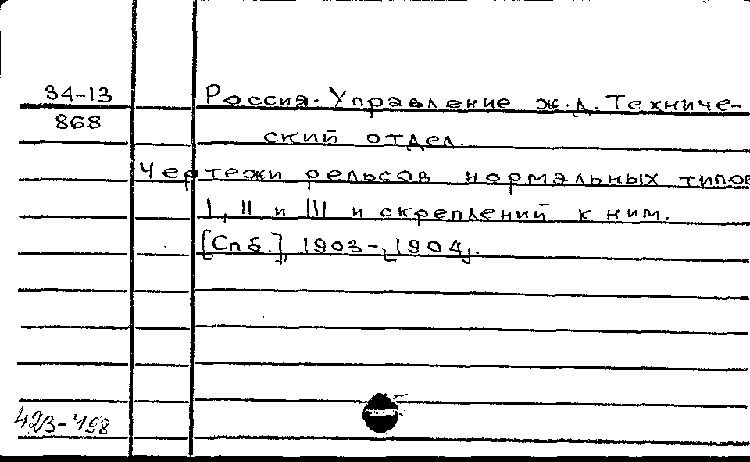 34-13
868
Россия. Управление ж.д. Техниче-
ский отдел.
Чертежи рельсов нормальных типов
I, II и III и скреплений к ним.
[Спб.], 1903-[1904].
423-498